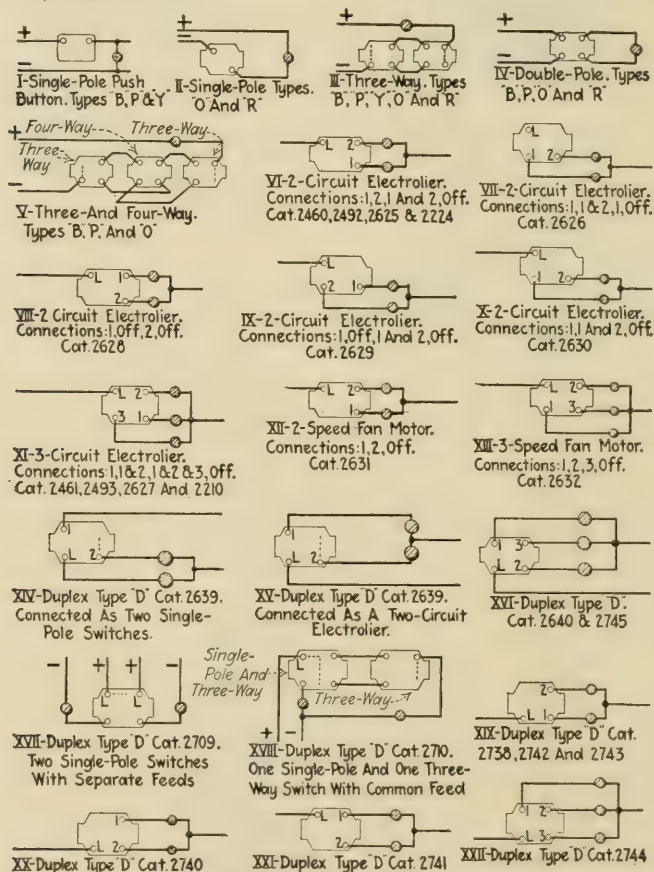 +
−
I-Single-Pole Push
Button. Types "B", P & Y"
+
−
II-Single-Pole Types.
"O" And "R"
+
−
III-Three-Way. Types
"B", "P", "Y", "O" And "R"
+
−
IV-Double-Pole. Types
"B", P, O" And "R"
+
−
Four-Way
Three-Way
Three-
Way
V-Three-And Four-Way.
Types "B", "P", And "O"
L 2
1
VI-2-Circuit Electrolier.
Connections:1,2,1 And 2,Off.
Cat.2460,2492,2625 & 2224
L
1 2
VII-2-Circuit Electrolier.
Connections:1,1&2,1,Off.
Cat. 2626
L 1
2
VIII-2 Circuit Electrolier.
Connections: 1,Off,2,Off.
Cat.2628
L
2 1
IX-2-Circuit Electrolier.
Connections:1,Off,1 And 2,Off.
Cat.2629
L
1 2
X-2-Circuit Electrolier.
Connections:1,1 And 2,Off.
Cat.2630
L 2
3 1
XI-3-Circuit Electrolier.
Connections:1,1&2,1&2&3,Off.
Cat. 2461,2493,2627 And 2210
L 2
1
XII-2-Speed Fan Motor.
Connections:1,2,Off.
Cat.2631
L 2
1 3
XIII-3-Speed Fan Motor.
Connections:1,2,3,Off.
Cat.2632
1
L 2
XIV-Duplex Type "D" Cat.2639.
Connected As Two Single-
Pole Switches.
1
L 2
XV-Duplex Type "D" Cat.2639.
Connected As A Two-Circuit
Electrolier.
1 3
L 2
XVI-Duplex Type "D".
Cat. 2640 & 2745
− + + −
L L
XVII-Duplex Type "D" Cat.2709.
Two Single-Pole Switches
With Separate Feeds
Single-
Pole And
Three-Way
L
Three-Way
+ −
XVIII-Duplex Type "D" Cat.2710.
One Single-Pole And One Three-
Way Switch With Common Feed
2
L 1
XIX-Duplex Type "D" Cat
2738,2742 And 2743
1
L 2
XX-Duplex Type "D" Cat.2740
L 1
2
XXI-Duplex Type "D" Cat.2741
1 2
L 3
XXII-Duplex Type "D" Cat.2744